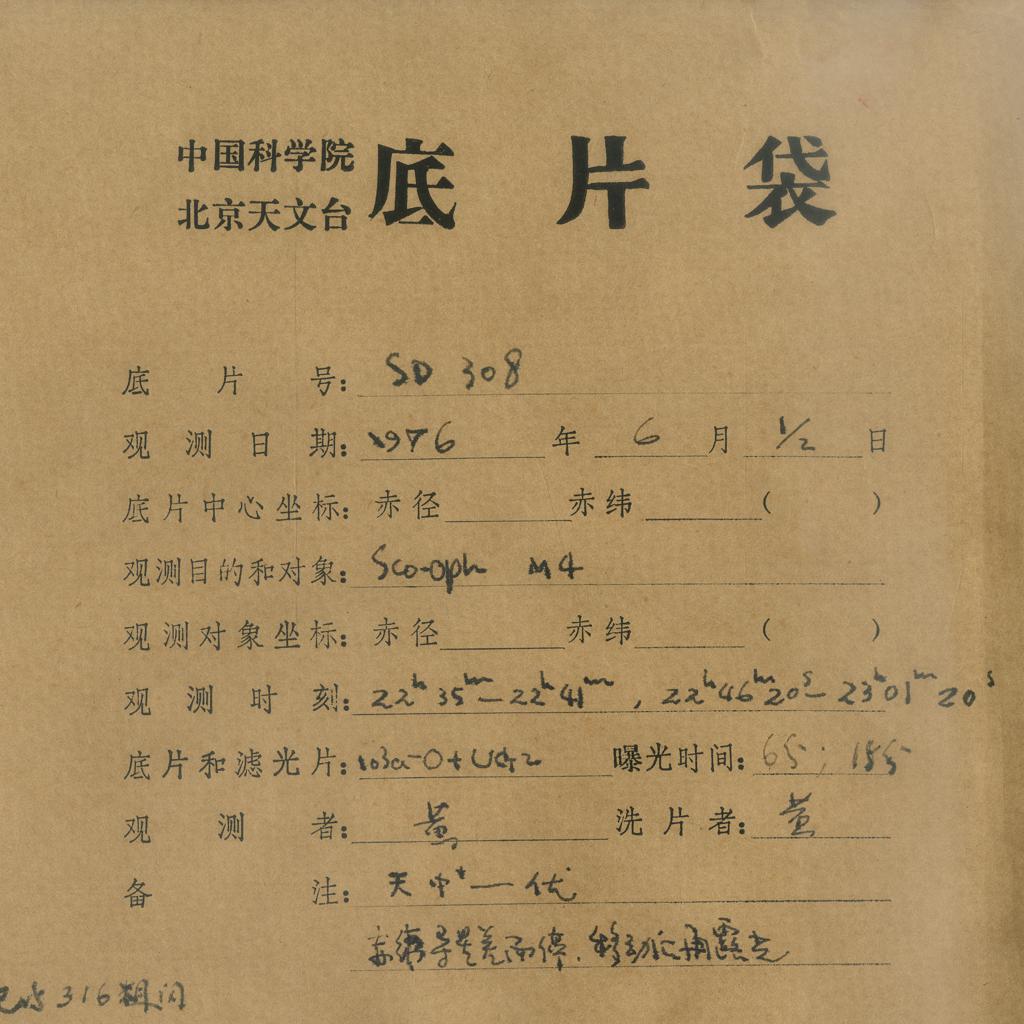 中国科学院
北京天文台
底片袋
底片号：SD 308
观测日期：1976年 6月 1/2日
底片中心坐标：赤径 赤纬 ( )
观测目的和对象：Sco-oph M4
观测对象坐标：赤径 赤纬 ( )
观测时刻：22h 35m — 22h 41m , 22h 46m 20s — 23h 01m 20s
底片和滤光片：103a-O + UG2 曝光时间：6分; 15分
观测者：黄 洗片者：黄
备注：天中+ — 优
导星差而停. 移动后再露光
316